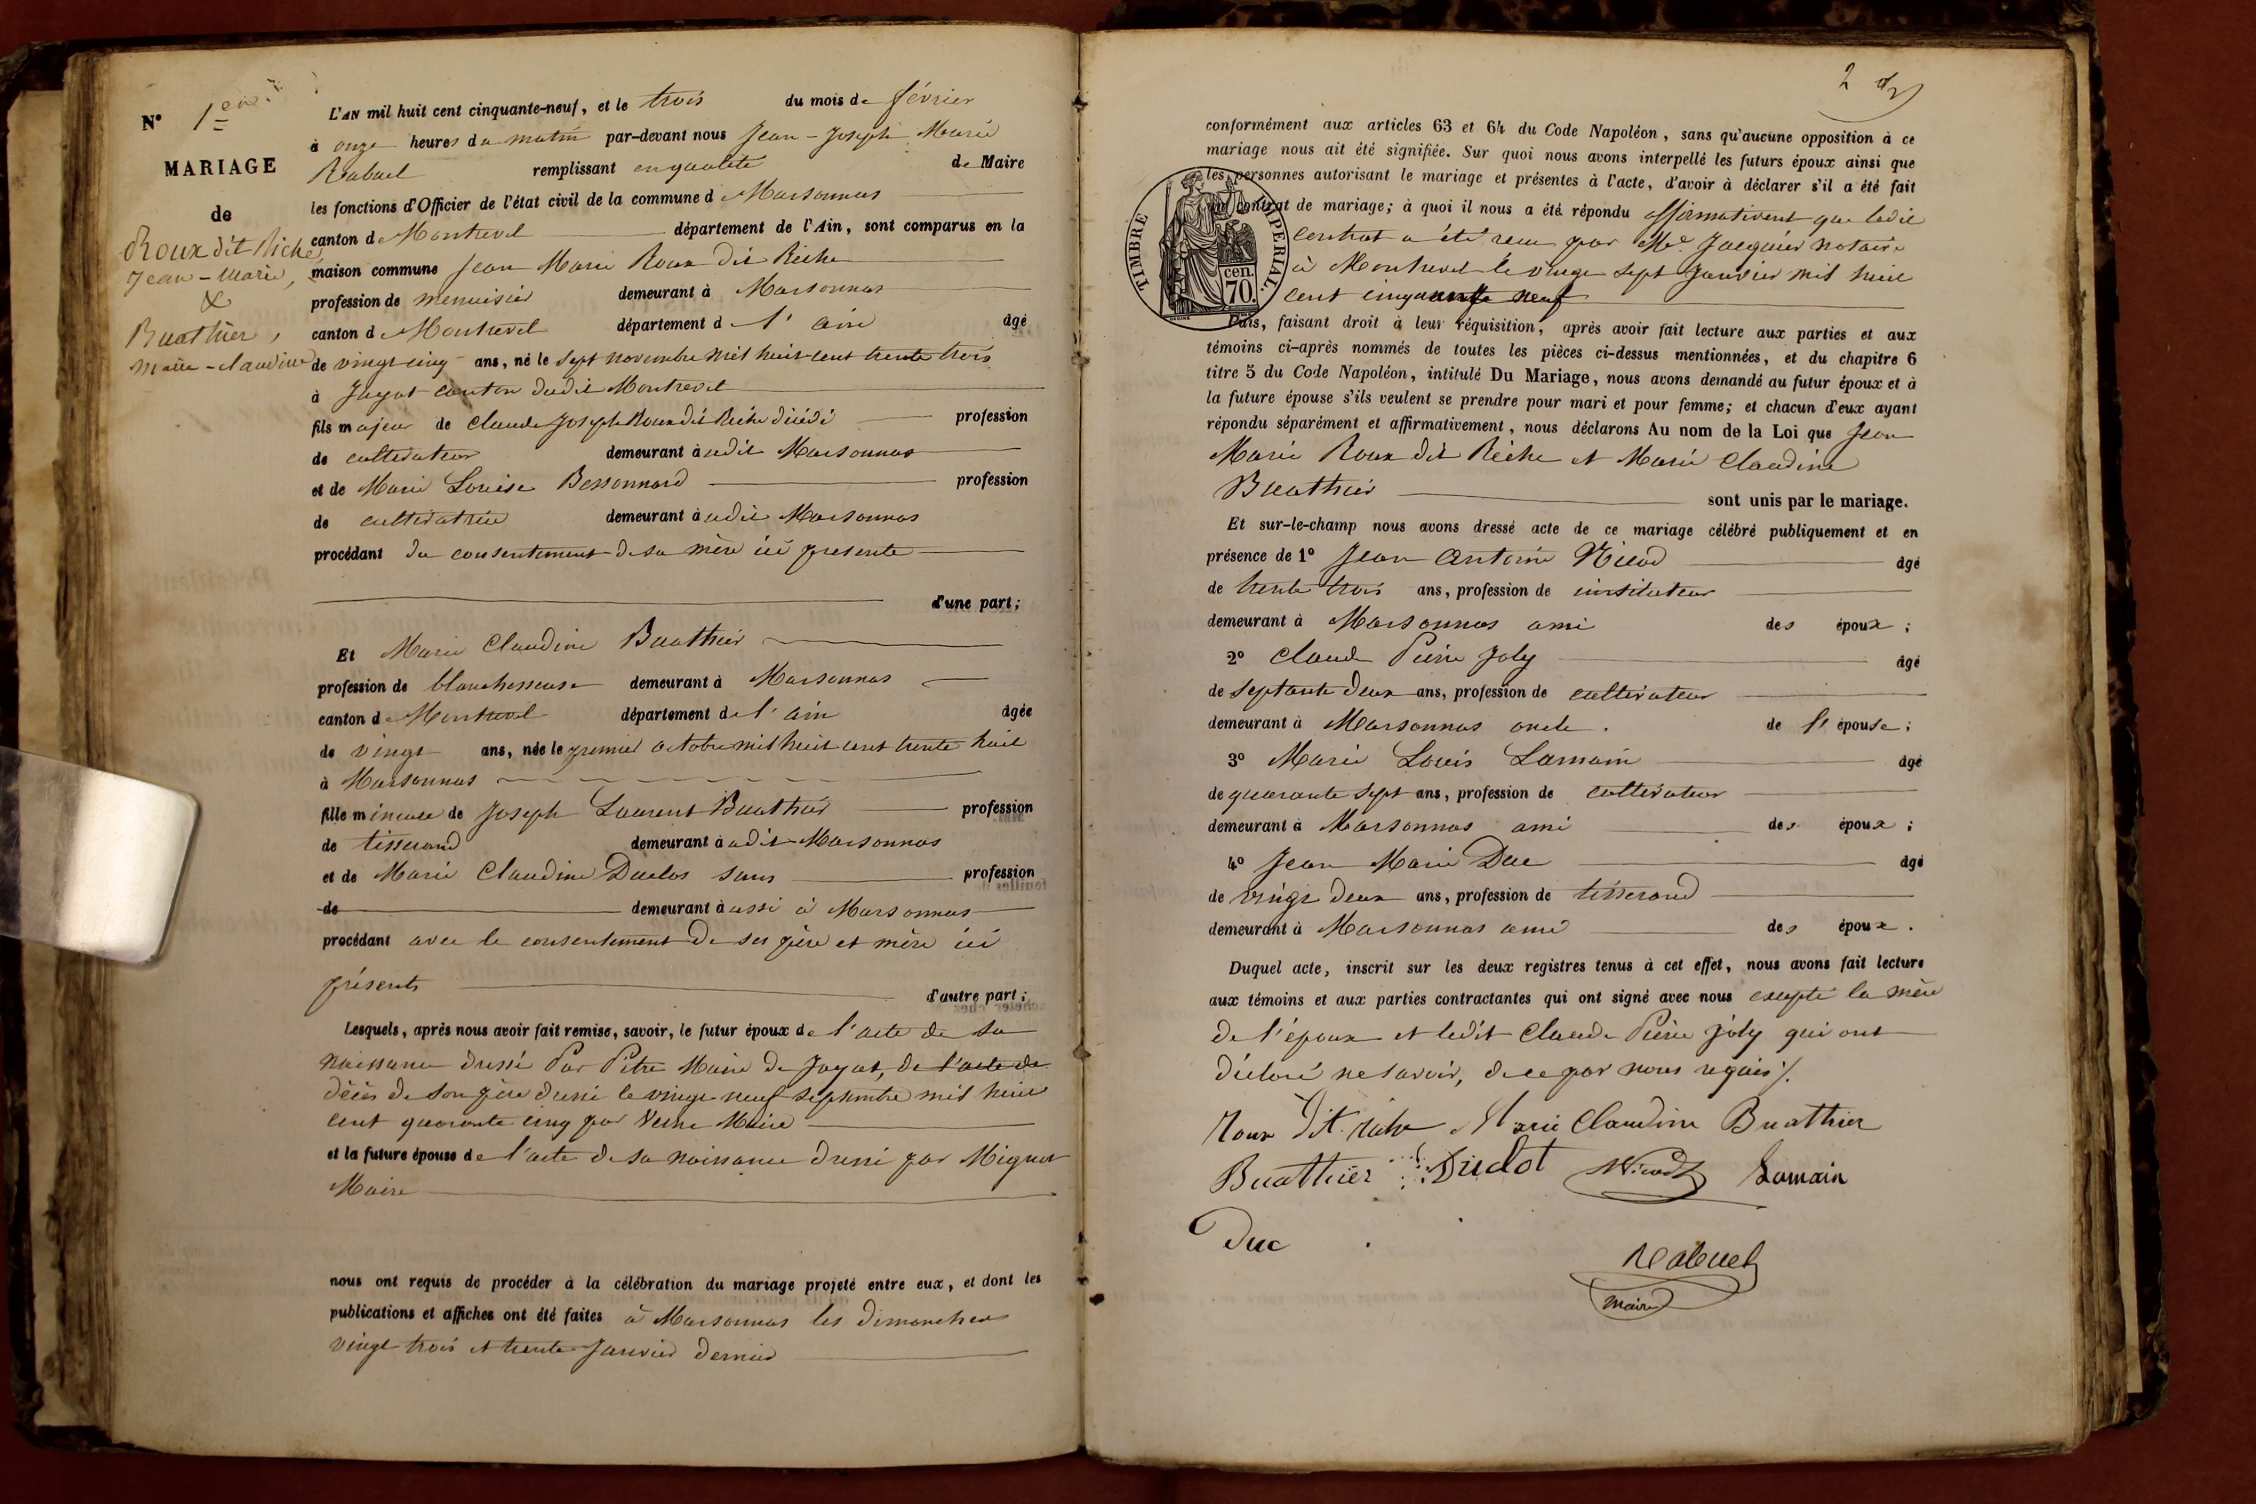 N° 1er
MARIAGE
de
Roux dit Riche,
Jean-Marie,
&
Buathier,
Marie-claudine
L'AN mil huit cent cinquante-neuf, et le trois du mois de février
à onze heures du matin par-devant nous Jean-Joseph Marie
Rabuel remplissant en qualité de Maire
les fonctions d'Officier de l'état civil de la commune d Marsonnas
canton de Montrevel département de l'Ain, sont comparus en la
maison commune Jean Marie Roux dit Riche
profession de menuisier demeurant à Marsonnas
canton de Montrevel département d l'ain âgé
de vingt cinq ans, né le sept novembre mil huit cent trente trois
à Jayat canton dudit Montrevel
fils majeur de Claude Joseph Roux dit Riche décédé profession
de cultivateur demeurant à udit Marsonnas
et de Marie Louise Bessonnard profession
de cultivatrice demeurant à udit Marsonnas
procédant du consentement de sa mère ici présente
d'une part;
Et Marie Claudine Buathier
profession de blanchisseuse demeurant à Marsonnas
canton de Montrevel département de l'ain âgée
de vingt ans, née le premier octobre mil huit cent trente huit
à Marsonnas
fille mineure de Joseph Laurent Buathier profession
de tisserand demeurant à udit Marsonnas
et de Marie Claudine Duclos sans profession
de demeurant à ussi à Marsonnas
procédant avec le consentement de ses père et mère ici
présents
d'autre part;
Lesquels, après nous avoir fait remise, savoir, le futur époux de l'acte de sa
naissance dressé Par Pitre Maire de Jayat, de l'acte de
décès de son père dressé le vingt neuf septembre mil huit
cent quarante cinq par Maire
et la future épouse de l'acte de sa naissance dressé par Miguet
Maire
nous ont requis de procéder à la célébration du mariage projeté entre eux, et dont les
publications et affiches ont été faites à Marsonnas les dimanches
vingt trois et trente Janvier dernier
2
conformément aux articles 63 et 64 du Code Napoléon, sans qu'aucune opposition à ce
mariage nous ait été signifiée. Sur quoi nous avons interpellé les futurs époux ainsi que
les personnes autorisant le mariage et présentes à l'acte, d'avoir à déclarer s'il a été fait
un contrat de mariage; à quoi il nous a été répondu affirmativement que ledit
contrat a été reçu par Me Jacquier notaire
à Montrevel le vingt sept Janvier mil huit
cent cinquante neuf
TIMBRE IMPERIAL.
cen.
70.
Puis, faisant droit à leur réquisition, après avoir fait lecture aux parties et aux
témoins ci-après nommés de toutes les pièces ci-dessus mentionnées, et du chapitre 6
titre 5 du Code Napoléon, intitulé Du Mariage, nous avons demandé au futur époux et à
la future épouse s'ils veulent se prendre pour mari et pour femme; et chacun d'eux ayant
répondu séparément et affirmativement, nous déclarons Au nom de la Loi que Jean
Marie Roux dit Riche et Marie Claudine
Buathier sont unis par le mariage.
Et sur-le-champ nous avons dressé acte de ce mariage célébré publiquement et en
présence de 1° Jean Antoine Nicod âgé
de trente trois ans, profession de instituteur
demeurant à Marsonnas ami des époux;
2° Claude Pierre Joly âgé
de septante deux ans, profession de cultivateur
demeurant à Marsonnas oncle de l'épouse;
3° Marie Louis Lamain âgé
de quarante sept ans, profession de cultivateur
demeurant à Marsonnas ami des époux;
4° Jean Marie Duc âgé
de vingt deux ans, profession de tisserand
demeurant à Marsonnas ami des époux.
Duquel acte, inscrit sur les deux registres tenus à cet effet, nous avons fait lecture
aux témoins et aux parties contractantes qui ont signé avec nous excepté la mère
de l'époux et ledit Claude Pierre Joly qui ont
déclaré ne savoir, de ce par nous requis /.
Roux Dit riche Marie Claudine Buathier
Buathier Nicod Lamain
Duc
Rabuel
maire